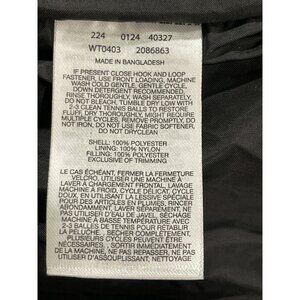 224 0124 40327
WT0403 2086863
MADE IN BANGLADESH
IF PRESENT CLOSE HOOK AND LOOP
FASTENER, USE FRONT LOADING, MACHINE
WASH COLD GENTLE, GENTLE CYCLE,
DOWN DETERGENT RECOMMENDED,
RINSE THOROUGHLY, WASH SEPARATELY,
DO NOT BLEACH, TUMBLE DRY LOW WITH
2-3 CLEAN TENNIS BALLS TO RESTORE
FLUFF, DRY THOROUGHLY, MIGHT REQUIRE
MULTIPLE CYCLES, REMOVE PROMPTLY, DO
NOT IRON, DO NOT USE FABRIC SOFTENER,
DO NOT DRYCLEAN
SHELL: 100% POLYESTER
LINING: 100% NYLON
FILLING: 100% POLYESTER
EXCLUSIVE OF TRIMMING
LE CAS ÉCHÉANT, FERMER LA FERMETURE
VELCRO. UTILISER UNE MACHINE À
LAVER À CHARGEMENT FRONTAL, LAVAGE
À FROID, CYCLE DÉLICAT, CYCLE
DOUX. EN UTILISANT LA LESSIVE SPÉCIALE
POUR DES ARTICLES EN PLUMES, RINCER
ABONDAMMENT. LAVER SÉPAREMENT, NE
PAS UTILISER D'EAU DE JAVEL, SÉCHAGE
MACHINE À BASSE TEMPÉRATURE AVEC
2-3 BALLES DE TENNIS POUR RÉTABLIR
LA PELUCHE, SECHER COMPLÈTEMENT,
PLUSIEURS CYCLES PEUVENT ÊTRE
NÉCESSAIRES, SORTIR IMMÉDIATEMENT,
NE PAS REPASSER, NE PAS UTILISER
D'ASSOUPLISSANT, NETTOYAGE